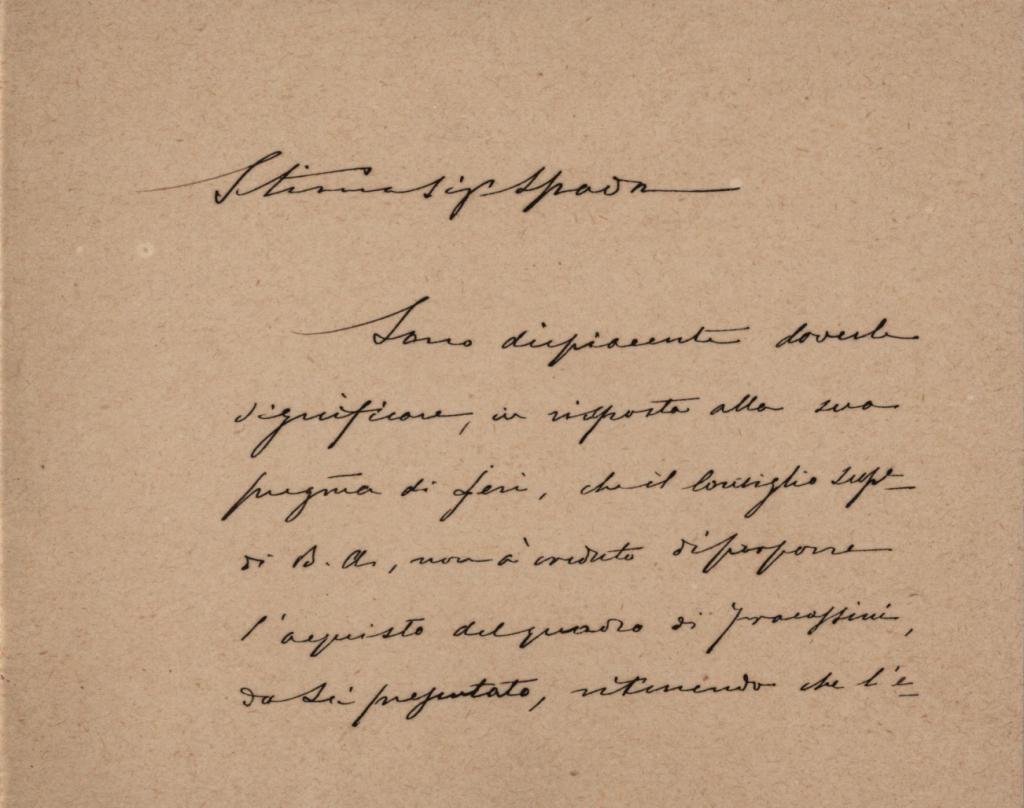 Stima Sigr Spada
Sono dispiacente doverle
significare, in risposta alla sua
pregma di jeri, che il Consiglio Supe-
di B. A., non à creduto di proporre
l'acquisto del quadro di Fracassini,
da Lei presentato, ritenendo che l'e-